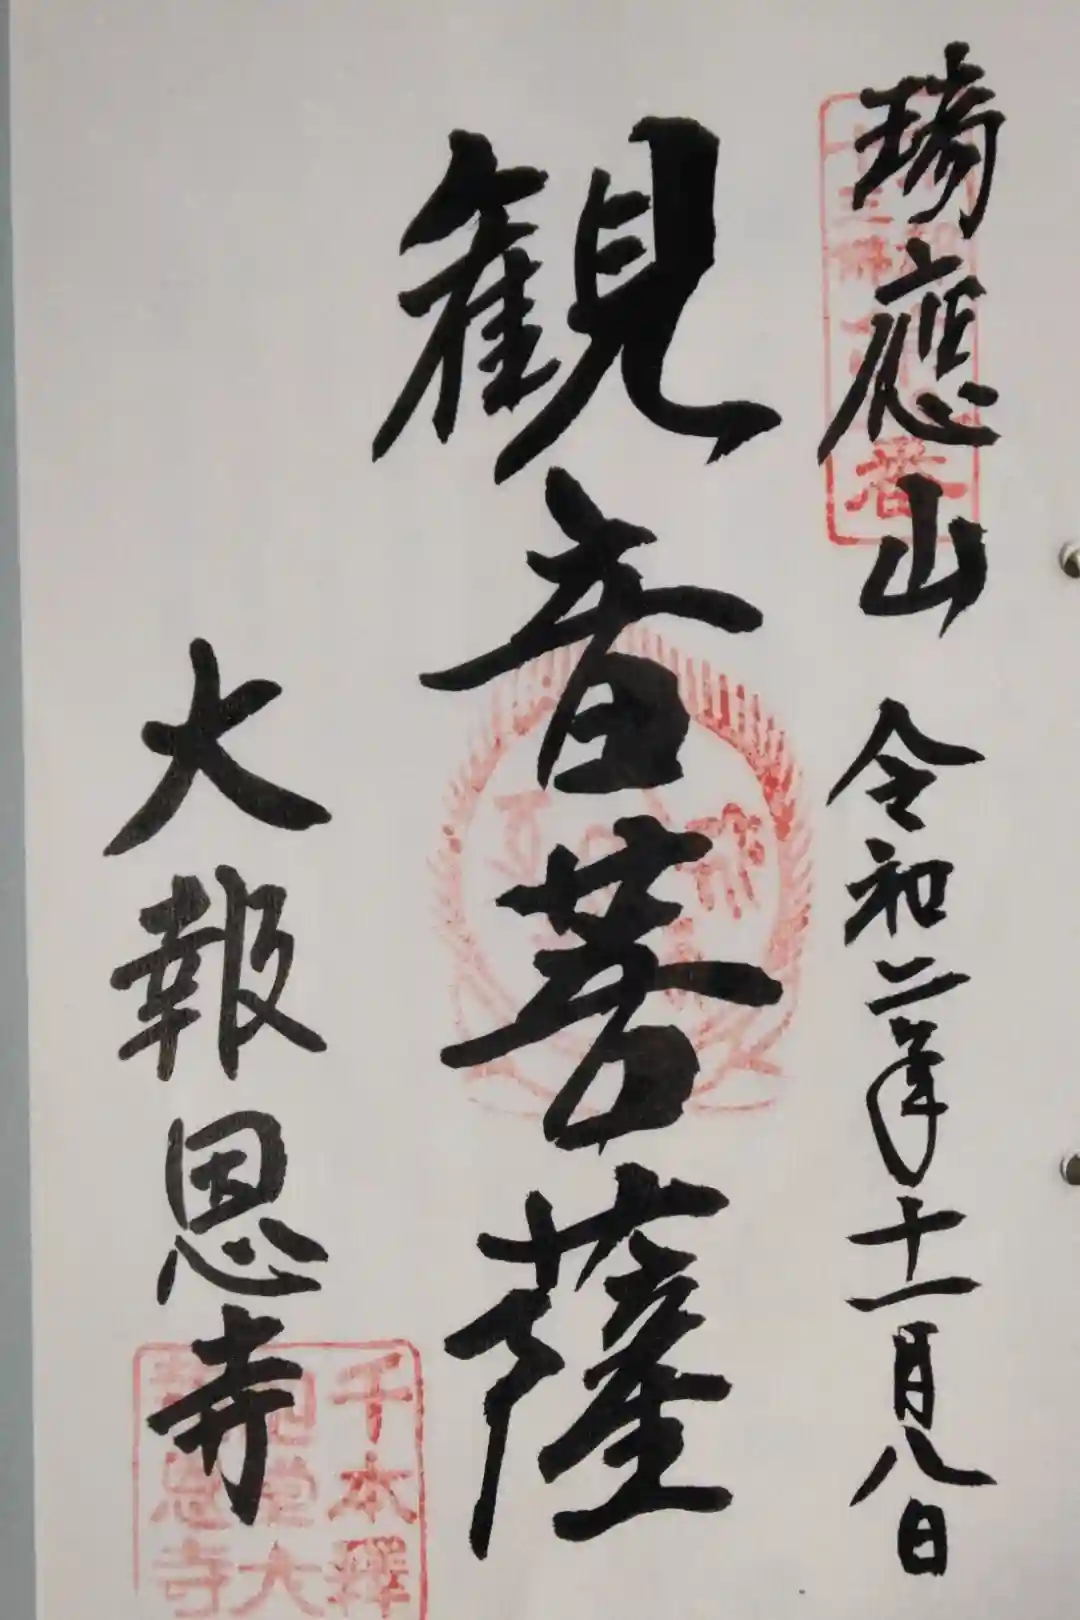 瑞應山 令和二年十一月八日
観音菩薩
大報恩寺
千本釋
迦堂大
報恩寺